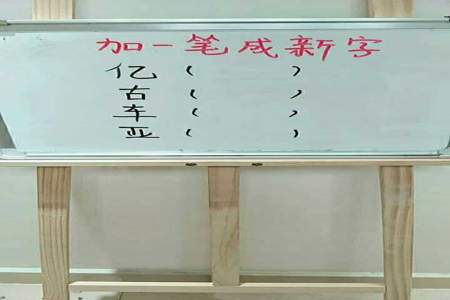 加一笔成新字
亿（ ）
古（ ）
车（ ）
亚（ ）